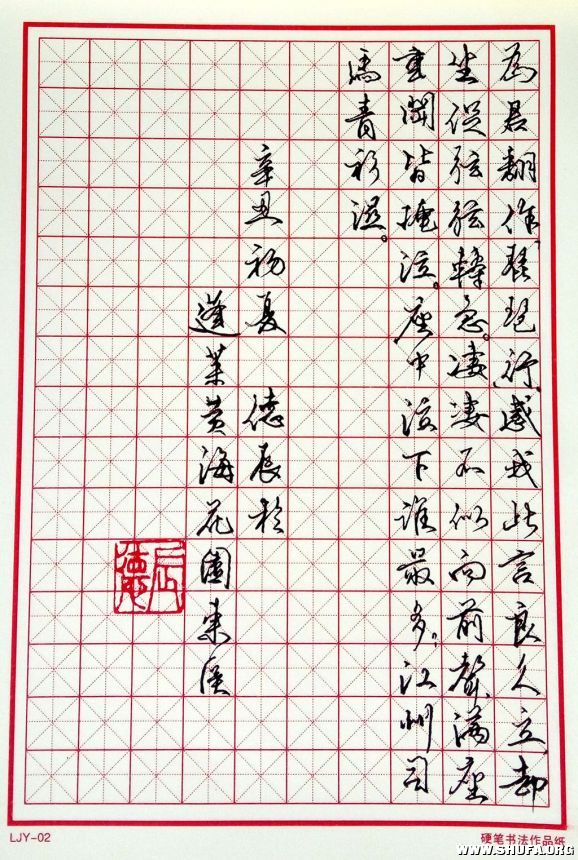 為君翻作琵琶行,感我此言良久立,却
坐促弦弦轉急。凄凄不似向前聲,满座
重闻皆掩泣。座中泣下谁最多?江州司
馬青衫湿。
辛丑初夏 德辰於
蓬莱黄海花園東
LJY-02
硬笔书法作品纸
WWW.SHUFA.ORG